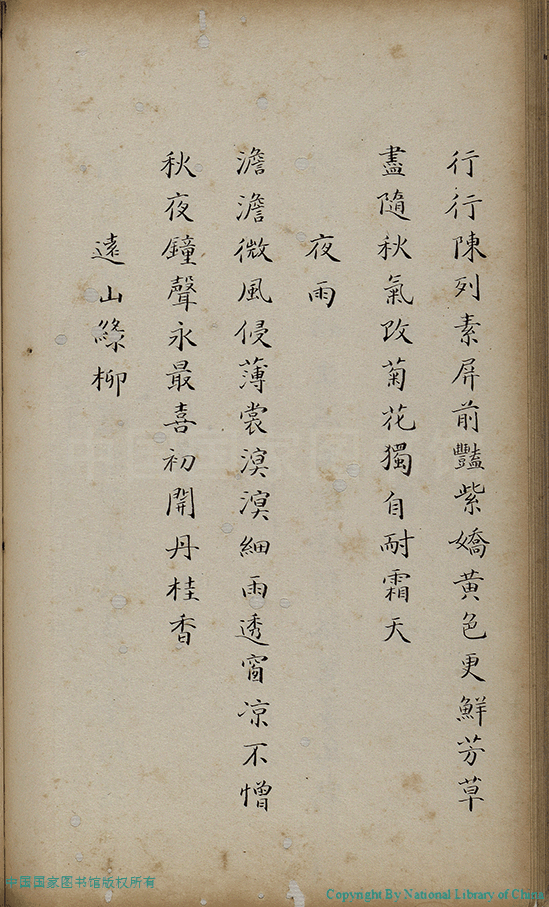 行行陳列素屏前豔紫嬌黃色更鮮芳草
盡隨秋氣改菊花獨自耐霜天
夜雨
澹澹微風侵薄裳溟溟細雨透窗凉不憎
秋夜鐘聲永最喜初開丹桂香
遠山綠柳
中国国家图书馆版权所有
Copyright By National Library of China